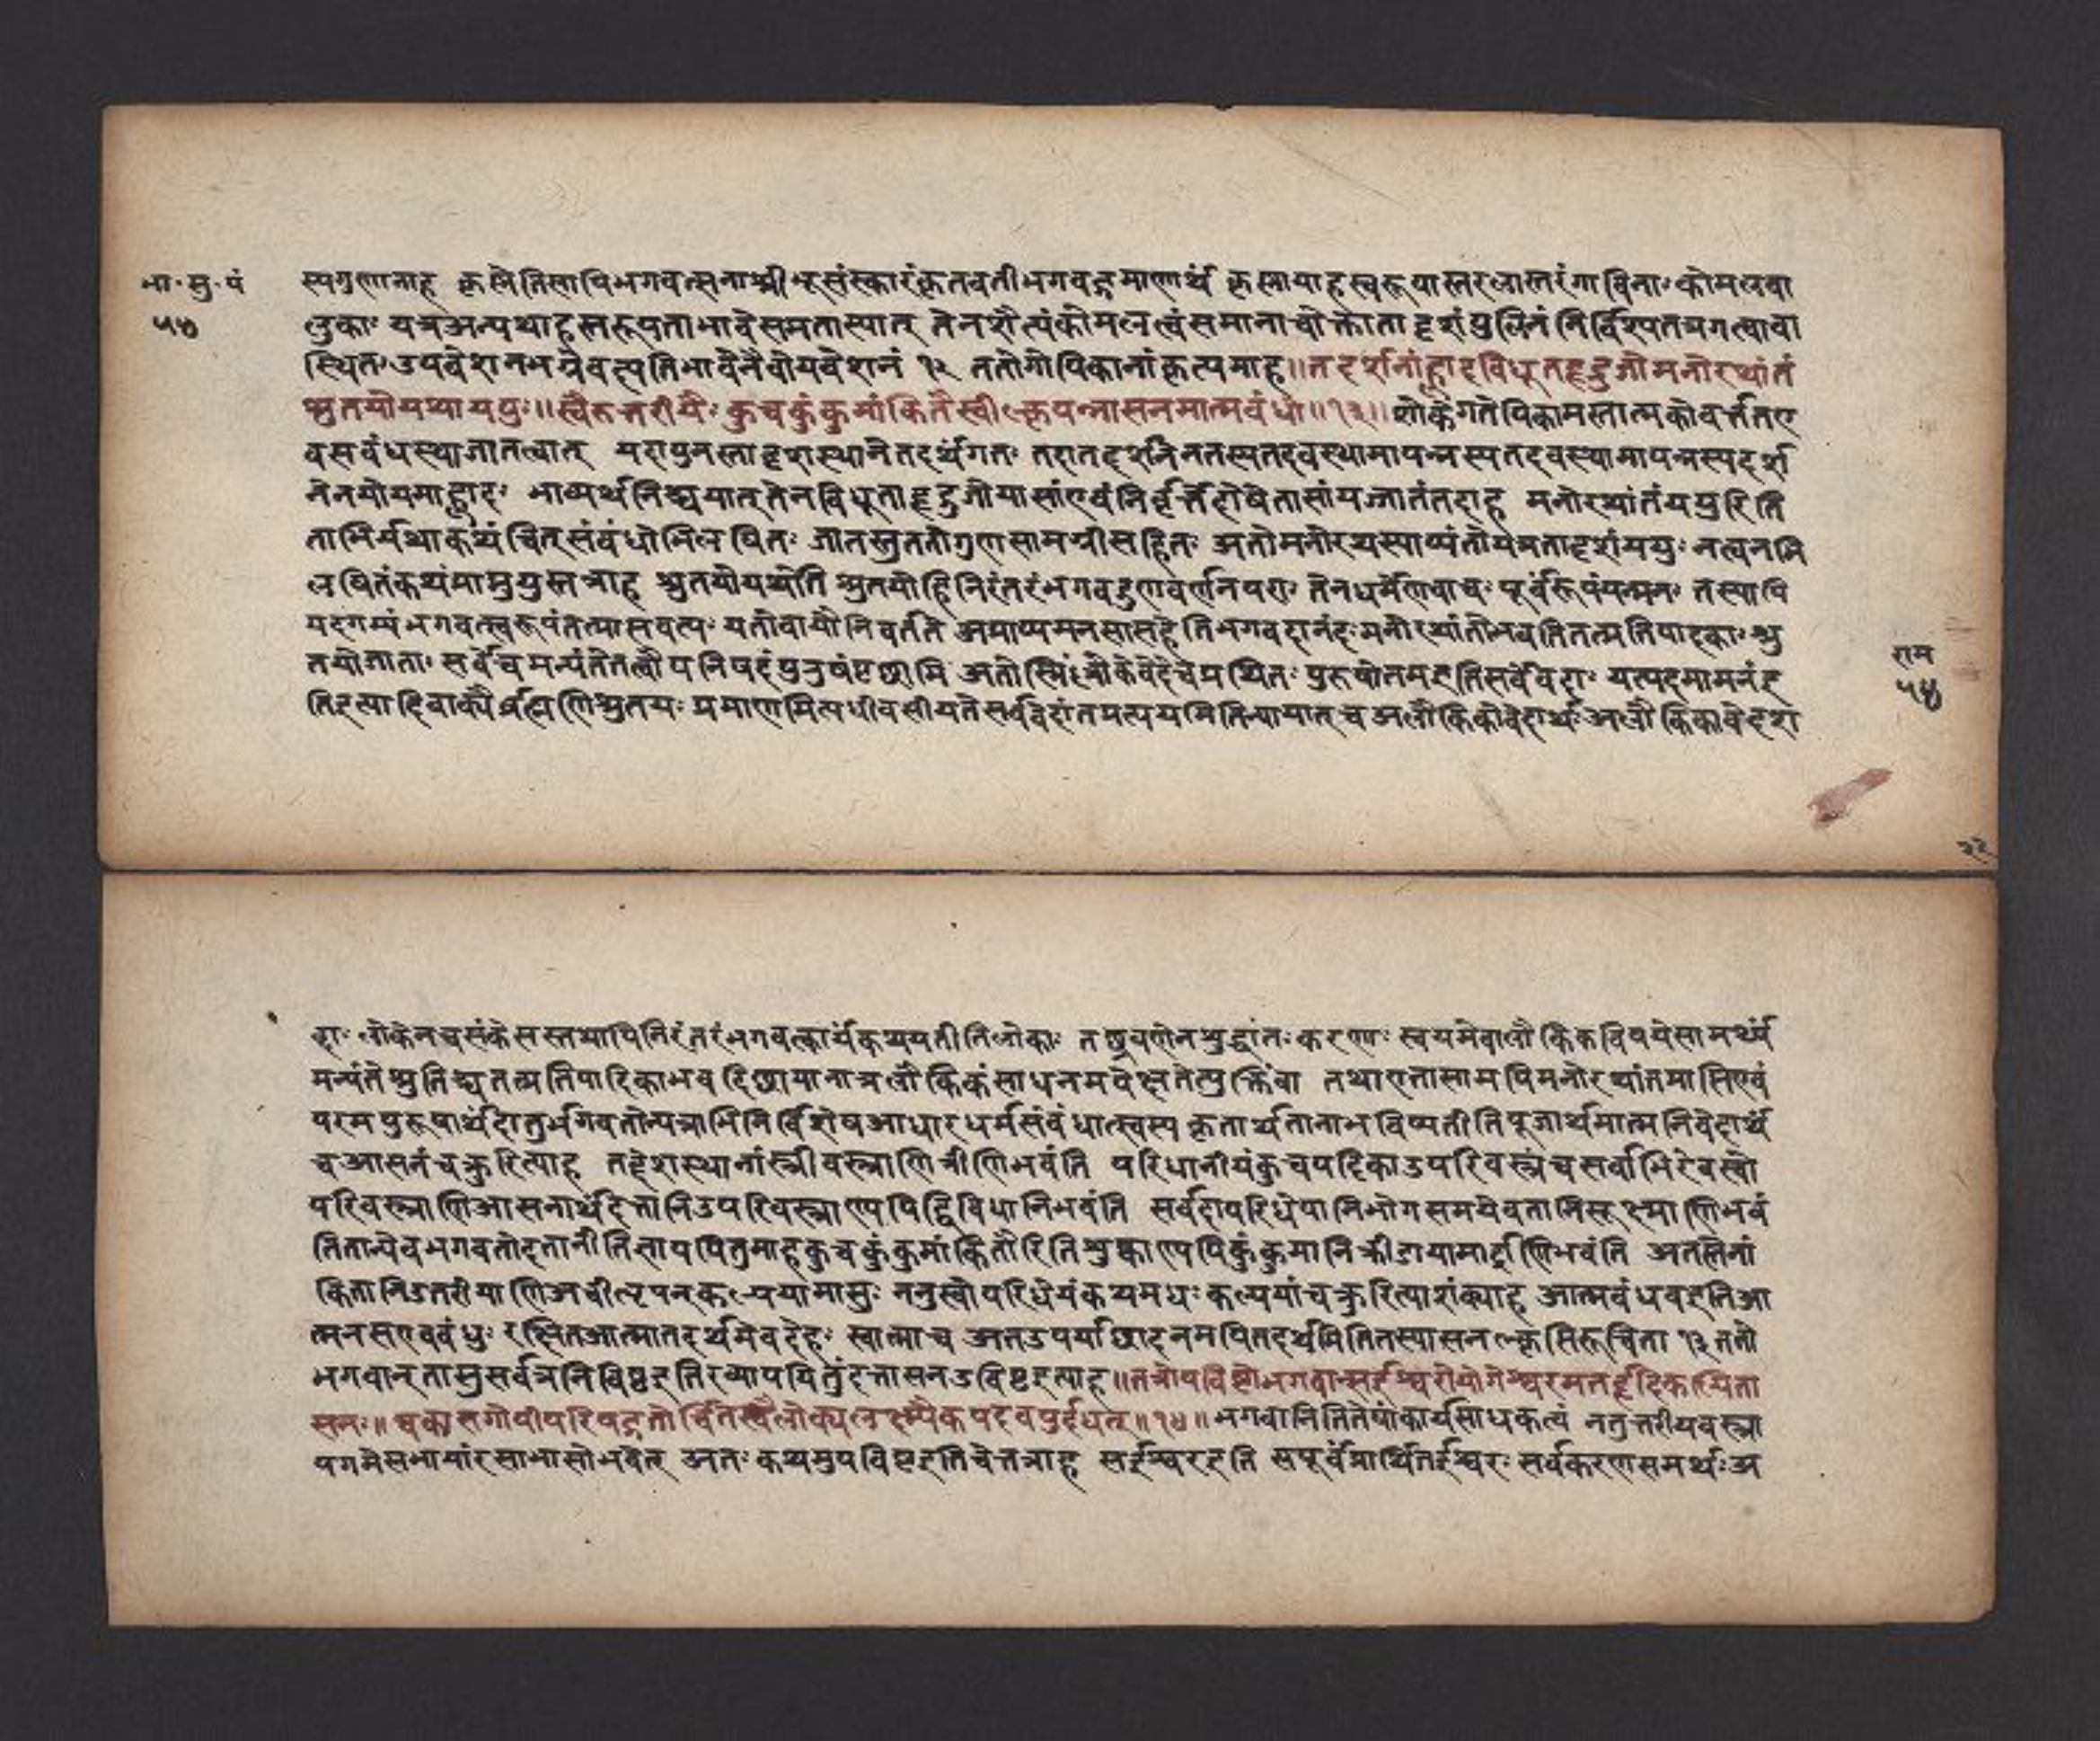 भा॰सु॰पं
५४
स्यगुणानाह कृष्णेतिसापिभगवत्सनाम्नीभूसंस्कारंकृतवतीभगवद्रमाणार्थं कृष्णायाहस्वरूपास्तरलास्तरंगाविना॰कोमलवा
लुका॰ यत्रअन्यथाहस्तरूपताभावेसमतास्यात् तेनशैत्यंकोमलत्वंसमानाचोक्तातादृशंपुलिनंनिर्विश्यतत्रगत्वावो
स्थित॰उपवेशनमग्रेवत्प्यतिभावेनैवोपवेशनं १२ ततोगोपिकानांकृत्यमाह॥तद्दर्शनांह्लादविधूतहृद्रुजोमनोरथांतं
श्रुतयोयथाययुः॥स्वैरुत्तरीयैः कुचकुंकुमांकितैरचीक्लृपन्नासनमात्मबंधवे॥१३॥शोकेगतेपिकामस्तात्मकोवर्त्ततए
वसबंधस्थाजातत्वात् यदापुनस्तादृशस्थानेतदर्थंगतः तदातद्दर्शनेनतस्यतदवस्थामापन्नस्यतदवस्थामापन्नस्यदर्श
नेनयोयमाह्लाद॰ भाव्यर्थनिश्चयात्तेनविधूताहृद्रुजोयासांएवंनिर्वृत्तेदोषेतासांयज्जातंतदाह मनोरथांतंययुरिति
ताभिर्यथाकथंचित्संबंधोभिलषितः जातस्तुततोगुणसामग्रीसहितः अतोमनोरथस्याप्यंतोयेत्रतादृशंययुः नत्वनभि
लषितंकथंमाप्नुयुस्तत्राह श्रुतयोयथेति श्रुतयोहिनिरंतरंभगवद्गुणवर्णनपरा॰ तेनधर्मेणवाच॰पूर्वरूपंयन्मन॰ तस्यापि
यदगम्यंभगवत्स्वरूपंतत्प्रासवत्य॰ यतोवाचोनिवर्ततेअप्राप्यमनसासहेतिभगवदानंद॰मनोरथांतोभवतितत्प्रतिपादका॰श्रु
तयोजाता॰ सर्वेचमन्यंतेतंत्वौपनिषदंपुरुषंपृछामि अतोस्मिंल्लोकेवेदेचप्रथितः पुरुषोतमइतिसर्वेवेदाः यत्पदमामनंद
तिइत्यादिवाक्यैर्ब्रह्मणिश्रुतयः प्रमाणमित्यधीवसीयतेसर्ववेदांतप्रत्ययमितिन्यायात् चअलौकिकोवेदार्थःअलौकिकावेदश
राम
५४
२२
ब्दा॰ लोकेनचसंकेसस्तथापिनिरंतरंभगवत्कार्यंकथयतीतिलोकाः तछ्रवणेनशुद्धांतःकरणाः स्वयमेवालौकिकविषयेसामर्थ्यं
मन्यंतेश्रुतिश्चतत्प्रतिपादिकाभवदिछायानात्रलौकिकंसाधनमपेक्षतेत्युक्तिंवा तथाएतासामपिमनोरथांतप्राप्तिएवं
परमपुरूषार्थंदातुर्भगवतोन्यत्राभिनिर्विशेषआधारधर्मसंबंधात्स्वस्यकृतार्थतानाभविष्यतीतिपूजार्थमात्मनिवेदार्थं
चआसनंचक्रुरित्याह तद्देशस्थानांस्त्रीवस्त्राणित्रीणिभवंति परिधानीयंकुचपट्टिकाउपरिवस्त्रंचसर्वाभिरेवस्वो
परिवस्त्राणिआसनार्थंदत्तानिउपरिवस्त्राण्यपिद्विविधानिभवंति सर्वदापरिधेयानिभोगसमयेवतानिसूक्ष्माणिभवं
तितान्येवभगवतोदत्तानीतिज्ञापयितुमाहकुचकुंकुमांकितैरितिशुष्काण्यपिकुंकुमानिक्रीडायामार्द्राणिभवंति अतस्तेनां
कितानिउतरीयाणिअचीत्कृपन्कल्पयामासुः ननुस्वोपरिधेयंकथमधः कल्पयांचक्रुरित्याशंक्याह आत्मबंधवइतिआ
त्मनसएवबंधुः रक्षितआत्मातदर्थमेवदेहः स्वात्माच अतउपर्याछादनमपितदर्थमितितस्यासनक्लृप्तिरूचिता १३ ततो
भगवान्तासुसर्वत्रनिविष्टइतिख्यापयितुंदत्तासनउविष्टइत्याह॥तत्रोपविष्टोभगवान्सईश्वरोयोगेश्वरमतर्हृदिकल्पिता
सनः॥ चकासगोपीपरिषद्गतोर्चितस्त्रैलोक्यलक्ष्म्यैकपदंवपुर्दधत्॥१४॥भगवानितितेषांकार्यसाधकत्वं नतुत्तरीयवस्त्रा
पगमेसभायांरसाभासोभवेत् अतः कथमुपविष्टइतिचेत्तत्राह सईश्वरइति सपूर्वंप्रार्थितईश्वरः सर्वकरणसमर्थःअ